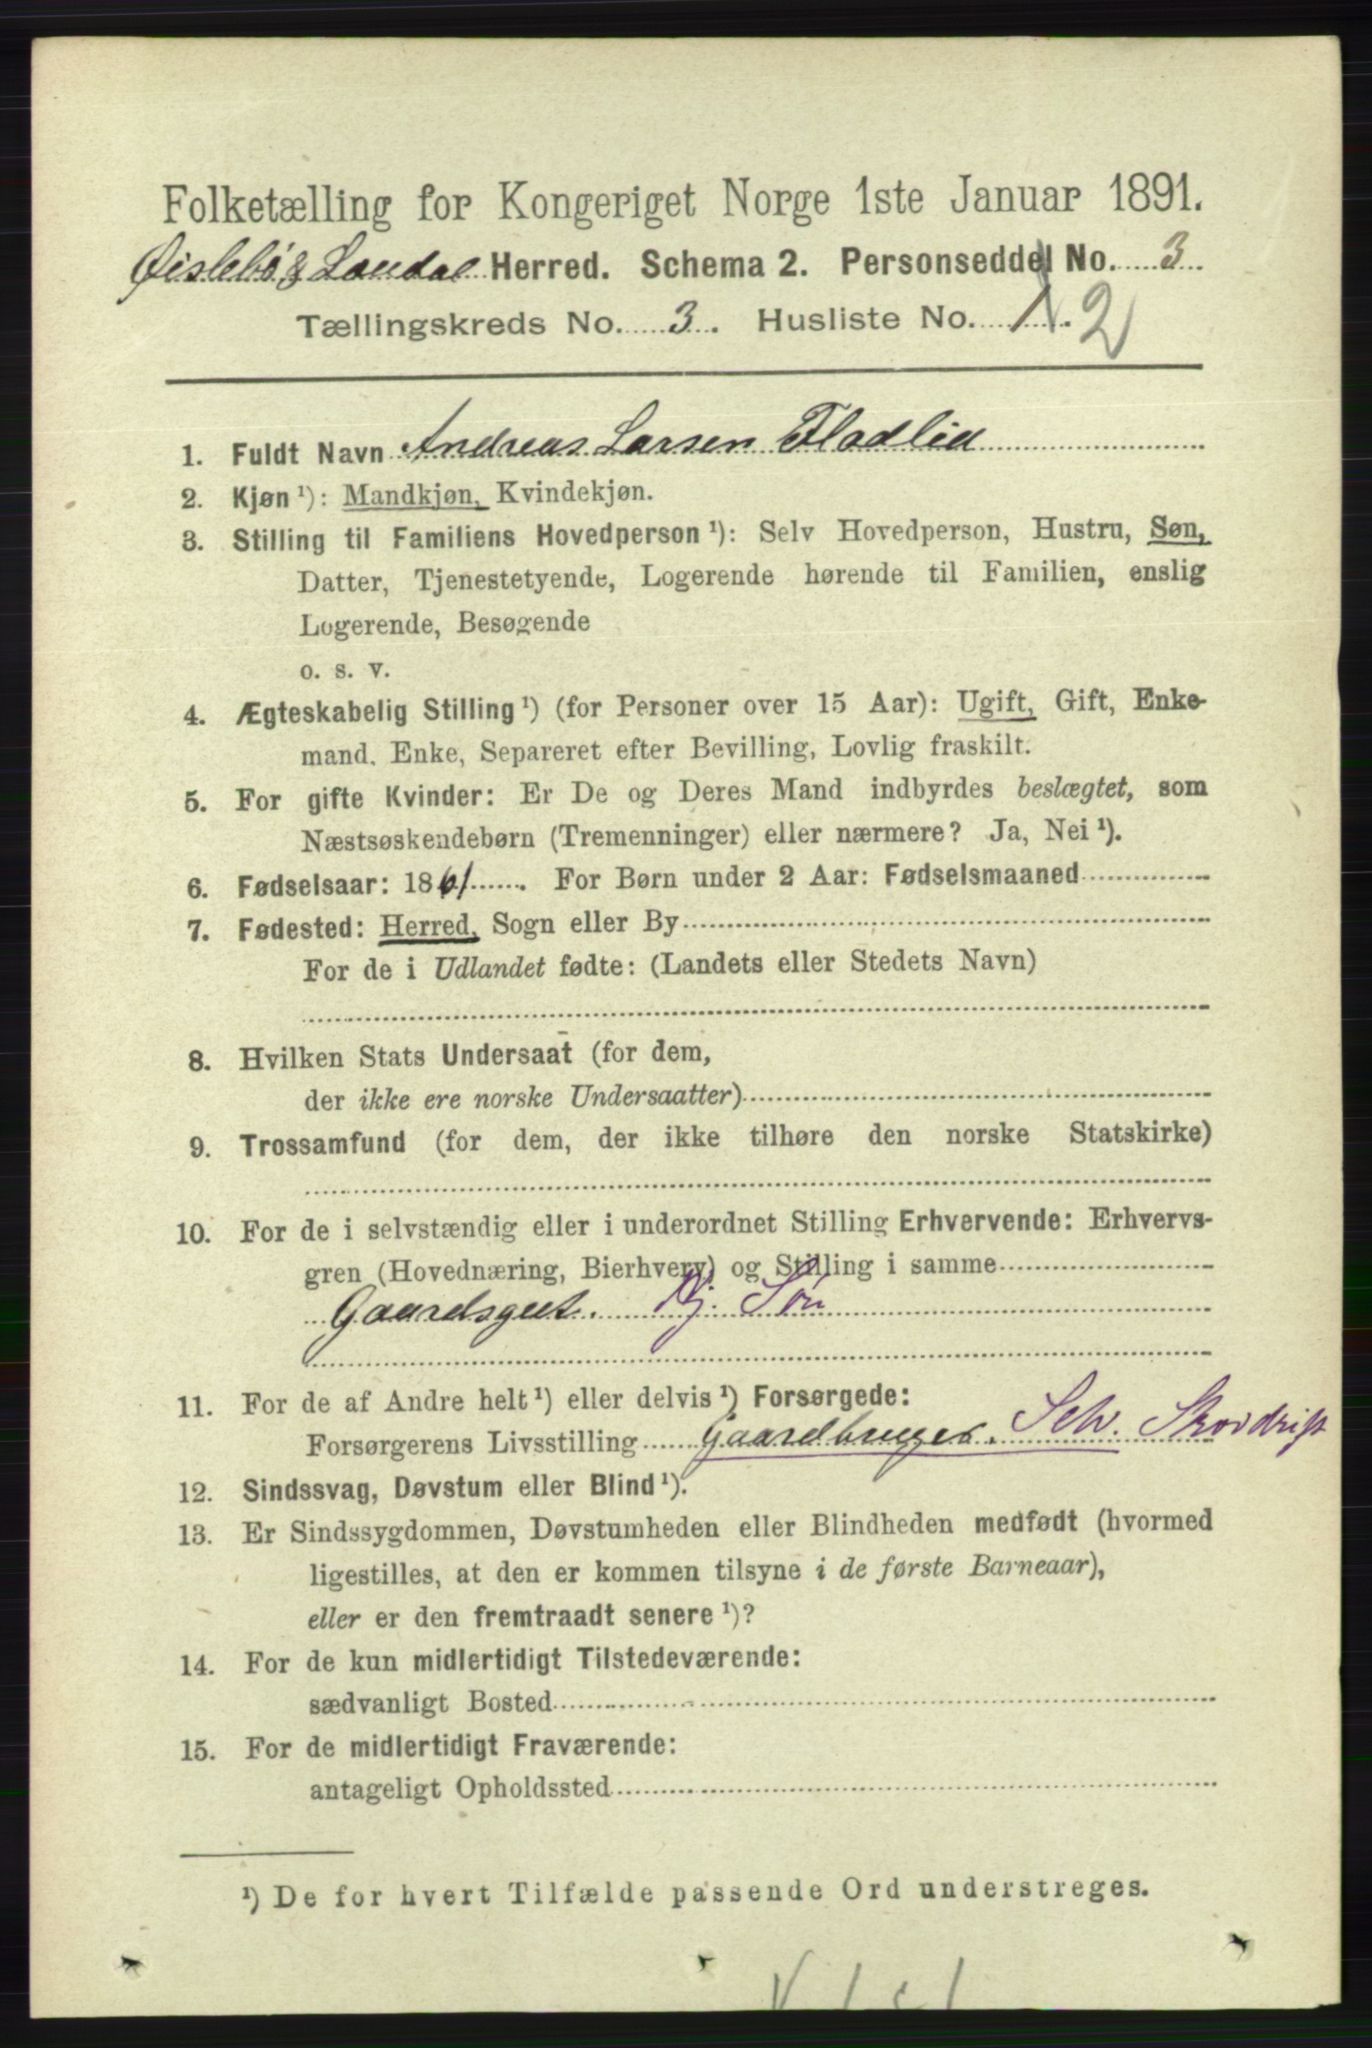 Folketælling for Kongeriget Norge 1ste Januar 1891.
Øislebø & Laudal Herred. Schema 2. Personseddel No. 3
Tællingskreds No. 3. Husliste No. 1. 2
1. Fuldt Navn Andreas Larsen Fladlid
2. Kjøn ¹): Mandkjøn, Kvindekjøn.
3. Stilling til Familiens Hovedperson ¹): Selv Hovedperson, Hustru, Søn,
Datter, Tjenestetyende, Logerende hørende til Familien, enslig
Logerende, Besøgende
o. s. v.
4. Ægteskabelig Stilling ¹) (for Personer over 15 Aar): Ugift, Gift, Enke-
mand, Enke, Separeret efter Bevilling, Lovlig fraskilt.
5. For gifte Kvinder: Er De og Deres Mand indbyrdes beslægtet, som
Næstsøskendebørn (Tremenninger) eller nærmere? Ja, Nei ¹).
6. Fødselsaar: 1861. For Børn under 2 Aar: Fødselsmaaned
7. Fødested: Herred, Sogn eller By
For de i Udlandet fødte: (Landets eller Stedets Navn)
8. Hvilken Stats Undersaat (for dem,
der ikke ere norske Undersaatter)
9. Trossamfund (for dem, der ikke tilhøre den norske Statskirke)
10. For de i selvstændig eller i underordnet Stilling Erhvervende: Erhvervs-
gren (Hovednæring, Bierhverv) og Stilling i samme
Gaardsgut. Søn
11. For de af Andre helt ¹) eller delvis ¹) Forsørgede:
Forsørgerens Livsstilling Gaardbruger. Selv. Skovdrift
12. Sindssvag, Døvstum eller Blind ¹).
13. Er Sindssygdommen, Døvstumheden eller Blindheden medfødt (hvormed
ligestilles, at den er kommen tilsyne i de første Barneaar),
eller er den fremtraadt senere ¹)?
14. For de kun midlertidigt Tilstedeværende:
sædvanligt Bosted
15. For de midlertidigt Fraværende:
antageligt Opholdssted
¹) De for hvert Tilfælde passende Ord understreges.